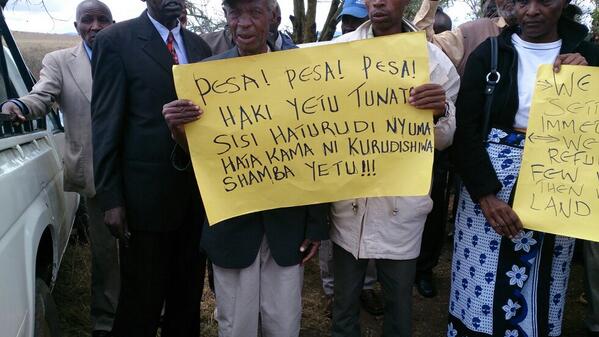 PESA! PESA! PESA!
HAKI YETU TUNATA
SISI HATURUDI NYUMA
HATA KAMA NI KURUDISHIWA
SHAMBA YETU!!!
→WE
SETT
IMME
→WE
REFU
FEW
THEN
LAND